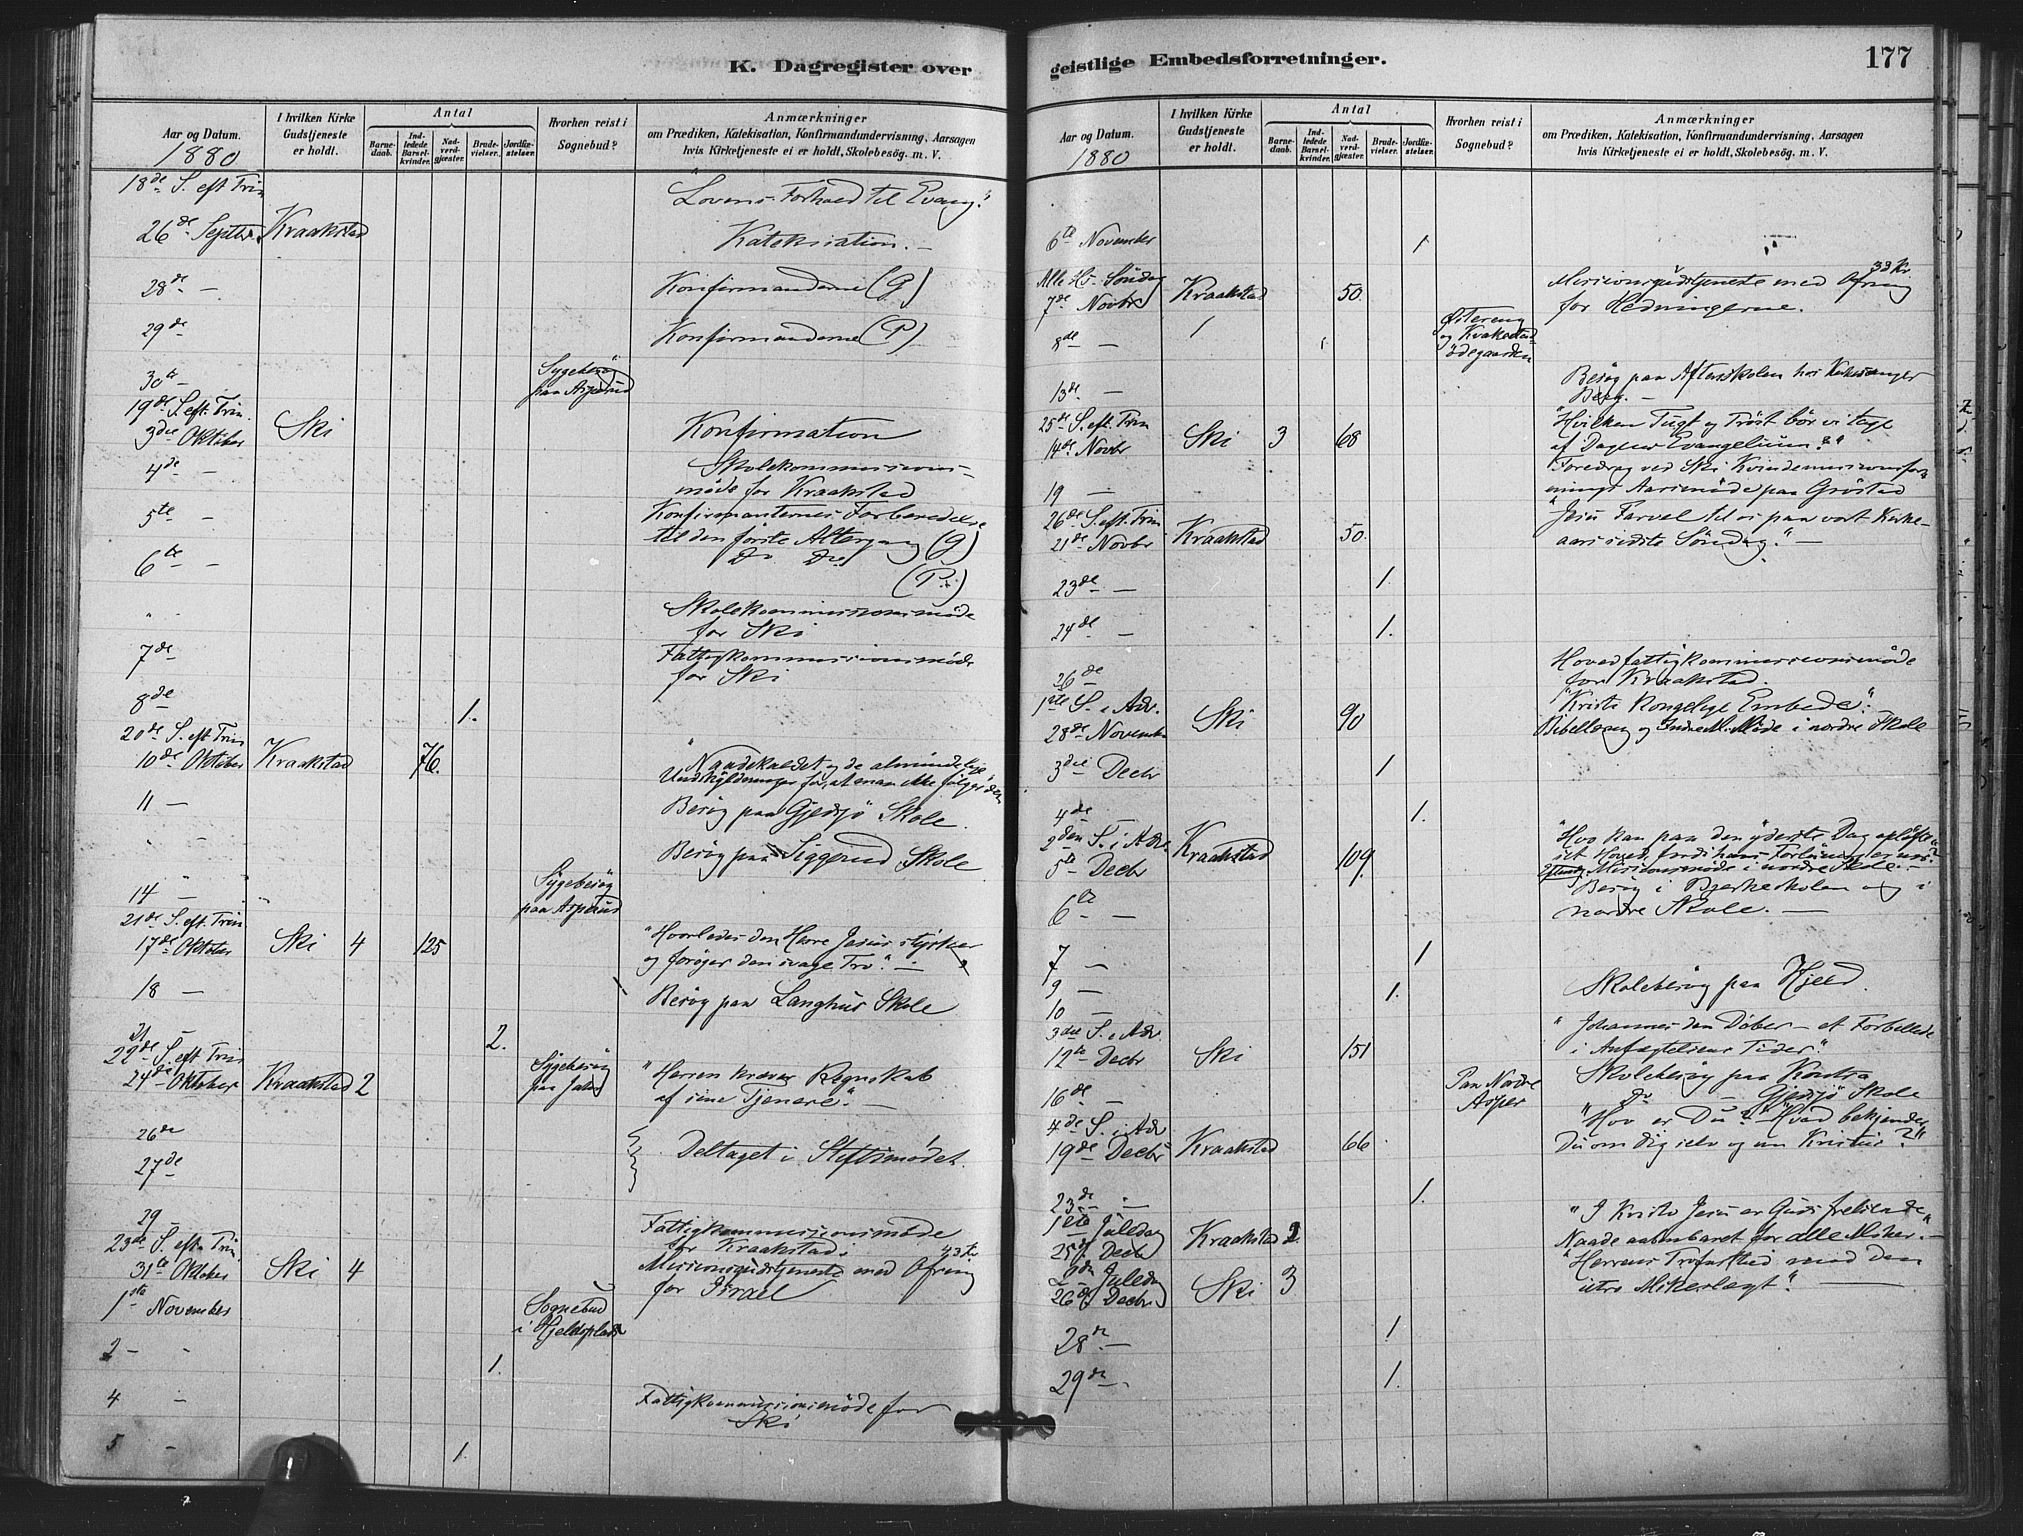 K. Dagregister over
Aar og Datum.
1880
I hvilken Kirke Gudstjeneste er holdt.
Antal
Barnedaab.
Indledede Barselkvinder.
Nadverdgjæster.
Brudevielser.
Jordfæstelser.
Hvorhen reist i Sognebud?
Anmærkninger
om Prædiken, Katekisation, Konfirmandundervisning, Aarsagen
hvis Kirketjeneste ei er holdt, Skolebesøg. m. V.
18de S. eft Trin "Lovens Forhold til Evang."
26de Septbr. Kraakstad Katekisation. –
28de – Konfirmanderne (G)
29de Konfirmanderne (P)
30te – Sygebesøg
paa Asperud
19de S. eft. Trin.
3die Oktober Ski Konfirmation
4de – Skolekommissions-
møde for Kraakstad
5te – Konfirmanternes Forberedelse
til den første Altergang (G)
6te – Do Do
(P.)
" Skolekommissionsmøde
for Ski
7de Fattigkommissionsmøde
for Ski
8de 1.
20de S. eft Trin
10de Oktober Kraakstad 76. "Naadekaldet og de almindelige
Undskyldninger for, at man ikke følger den
11 – Besøg paa Gjedsjø Skole.
" Besøg paa Siggerud Skole
14 – Sygebesøg
paa Asperud
21de S. eft. Trin
17de Oktober Ski 4 125 "Hvorledes den Herre Jesus styrker
og forøger den svage Tro". –
18 – Besøg paa Langhus Skole
21 2.
22de S. eft Trin
24de Oktober Kraakstad 2 Sygebesøg
paa "Herren kræver Regnskab
af sine Tjenere". –
26de
27de Deltaget i Stiftsmødet.
29 – Fattigkommissionsmøde
for Kraakstad.
23de S. eft. Trin
31te Oktober Ski 4 Missionsgudstjeneste med Ofring
for Israel
1ste November Sognebud
i Hjeldspladsen
2 – 1.
4 – Fattigkommissionsmøde for
Ski
5 – 1.
geistlige Embedsforretninger.
177
Aar og Datum.
1880
I hvilken Kirke Gudstjeneste er holdt.
Antal
Barnedaab.
Indledede Barselkvinder.
Nadverdgjæster.
Brudevielser.
Jordfæstelser.
Hvorhen reist i Sognebud?
Anmærkninger
om Prædiken, Katekisation, Konfirmandundervisning, Aarsagen
hvis Kirketjeneste ei er holdt, Skolebesøg. m. V.
6te November 1
Alle H. Søndag 33 Kr.
7de Novbr Kraakstad 50. Missionsgudstjeneste med Ofring
for Hedningerne.
8de – Østereng
og Kraakstad
ødegaarden
13de – Besøg paa Aftenskolen hos Kirkesanger
Berg. –
25de S. eft. Trin
14de Novbr Ski 3 68 "Hvilken Tugt og Trøst bør vi tage
af Dagens Evangelium?"
19 – Foredrag ved Ski Kvindemissionsfor-
enings Aarsmøde paa Grøstad
26de S. eft. Trin
21de Novbr Kraakstad 50. "Jesu Farvel til os paa vort Kirke-
aars sidste Søndag." –
23de – 1.
24de – 1.
26de Hovedfattigkommissionsmøde
for Kraakstad.
1ste S. i Adv.
28de November Ski 90 "Kristi Kongelige Embede".
Bibellæsn. og Indre M. Møde i nordre Skole
3die Decbr 1
4de – 1.
2den S. i Adv.
5te Decbr Kraakstad 109. "Hvo kan paa den yderste Dag opløfte
sit Hoved, fordi hans Forløsning er nær?
Missionsmøde i nordre Skole. –
6te – Besøg i Bjerkeskolen og i
nordre Skole. –
7 – 1
9 – 1. Skolebesøg paa Hjeld.
10 –
3die S. i Adv.
12te Decbr Ski 151 "Johannes den Døber – et Forbillede
i Anfægtelsens Tider"
16de – Paa Nordre
Asper Skolebesøg paa Kontra
Do – Gjedsjø Skole
4de S. i Adv
19de Decbr Kraakstad 66 "Hvo er Du? Hvad bekjender
Du om dig selv og om Kristus?"
23de – 1.
1ste Juledag
25de Decbr Kraakstad "I Kristo Jesu er Guds frelsende
Naade aabenbaret for alle Mskr." –
2den Juledag
26de Decbr Ski 3 "Herrens Trofasthed mod den
utro Mskeslægt". –
28de – 1.
29de – 1.